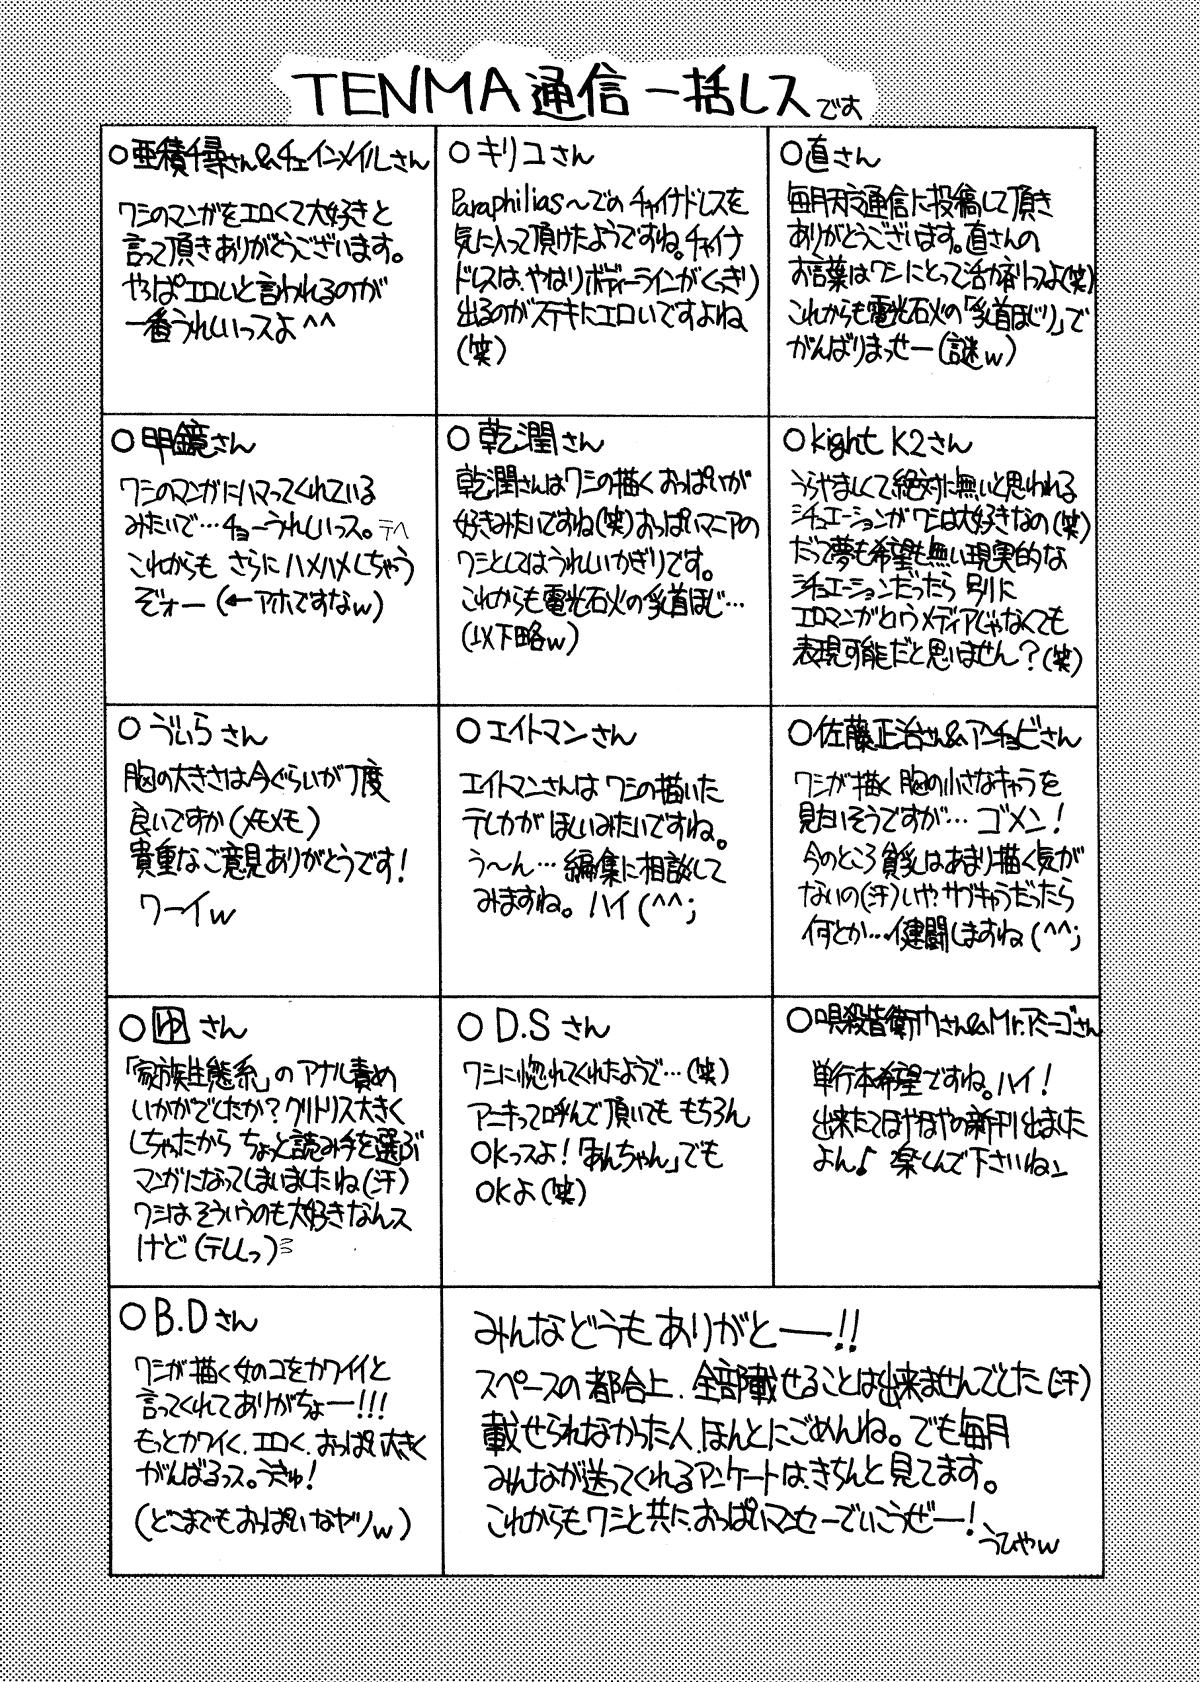 TENMA通信一括レスです
○亜積千尋さん&チェインメイルさん
ワシのマンガをエロくて大好きと
言って頂きありがとうございます。
やっぱエロいと言われるのが
一番うれしいっスよ^^
○キリコさん
Paraphilias～でのチャイナドレスを
気に入って頂けたようですね。チャイナ
ドレスは、やはりボディーラインがくっきり
出るのがステキにエロいですよね
(笑)
○直さん
毎月天交通信に投稿して頂き
ありがとうございます。直さんの
お言葉はワシにとって活力剤っスよ(笑)
これからも電光石火の「乳首ほじり」で
がんばりまっせー(謎w)
○甲鏡さん
ワシのマンガにハマってくれている
みたいで…チョーうれしいっス。テヘ
これからも さらにハメハメしちゃう
ぞォー(←アホですなw)
○乾潤さん
乾潤さんはワシの描くおっぱいが
好きみたいですね(笑)おっぱいマニアの
ワシとしてはうれしいかぎりです。
これからも電光石火の乳首ほじ…
(以下略w)
○Kight K2さん
うらやましくて絶対に無いと思われる
シチュエーションがワシは大好きなの(笑)
だって夢も希望も無い現実的な
シチュエーションだったら 別に
エロマンガというメディアじゃなくても
表現可能だと思いません?(笑)
○うぃらさん
胸の大きさは今ぐらいが丁度
良いですか(メモメモ)
貴重なご意見ありがとうです!
ワーイw
○エイトマンさん
エイトマンさんは ワシの描いた
テレカが ほしいみたいですね。
う～ん…編集に相談して
みますね。ハイ(^^;
○佐藤正治さん&アンチョビさん
ワシが描く胸の小さなキャラを
見たいそうですが… ゴメン!
今のところ貧乳はあまり描く気が
ないの(汗)いや、サブキャラだったら
何とか…健闘しますね(^^;
○ゆさん
「家族生態系」のアナル責め
いかがでしたか?クリトリス大きく
しちゃったから ちょっと読み手を選ぶ
マンガになってしまいましたね(汗)
ワシは そういうのも大好きなんス
けど(テレレっ)
○D.Sさん
ワシに惚れてくれたようで…(笑)
アニキって呼んで頂いても もちろん
OKっスよ!「あんちゃん」でも
OKよ(笑)
さん&Mr.アミーゴさん
単行本希望ですね。ハイ!
出来たてほやほやの新刊出ました
よん♪ 楽しんで下さいね
○B.Dさん
ワシが描く女のコをカワイイと
言ってくれてありがちょー!!!
もっとカワイく、エロく、おっぱい大きく
がんばるっス。うきゅ!
(どこまでもおっぱいなヤツw)
みんなどうもありがとー!!
スペースの都合上、全部載せることは出来ませんでした(汗)
載せられなかった人、ほんとにごめんね。でも毎月
みんなが送ってくれるアンケートは、きちんと見てます。
これからもワシと共に、おっぱいマンセーでいこうぜー!
うひゃw